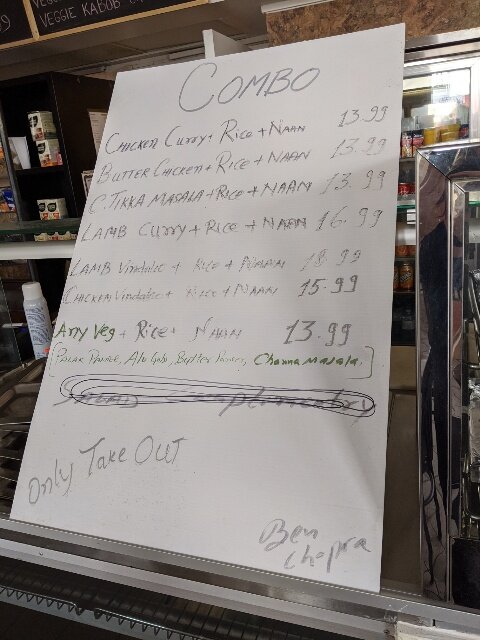 VEGGIE KABOB
COMBO
CHICKEN CURRY + RICE + NAAN 13.99
BUTTER CHICKEN + RICE + NAAN 13.99
C. TIKKA MASALA + RICE + NAAN 13.99
LAMB CURRY + RICE + NAAN 16.99
LAMB Vindaloo + RICE + NAAN 18.99
CHICKEN Vindaloo + RICE + NAAN 15.99
Any Veg + RICE + NAAN 13.99
[Palak Paneer, Alu Gobi, Butter Paneer, Channa Masala.]
Only Take Out
Ben
Chopra